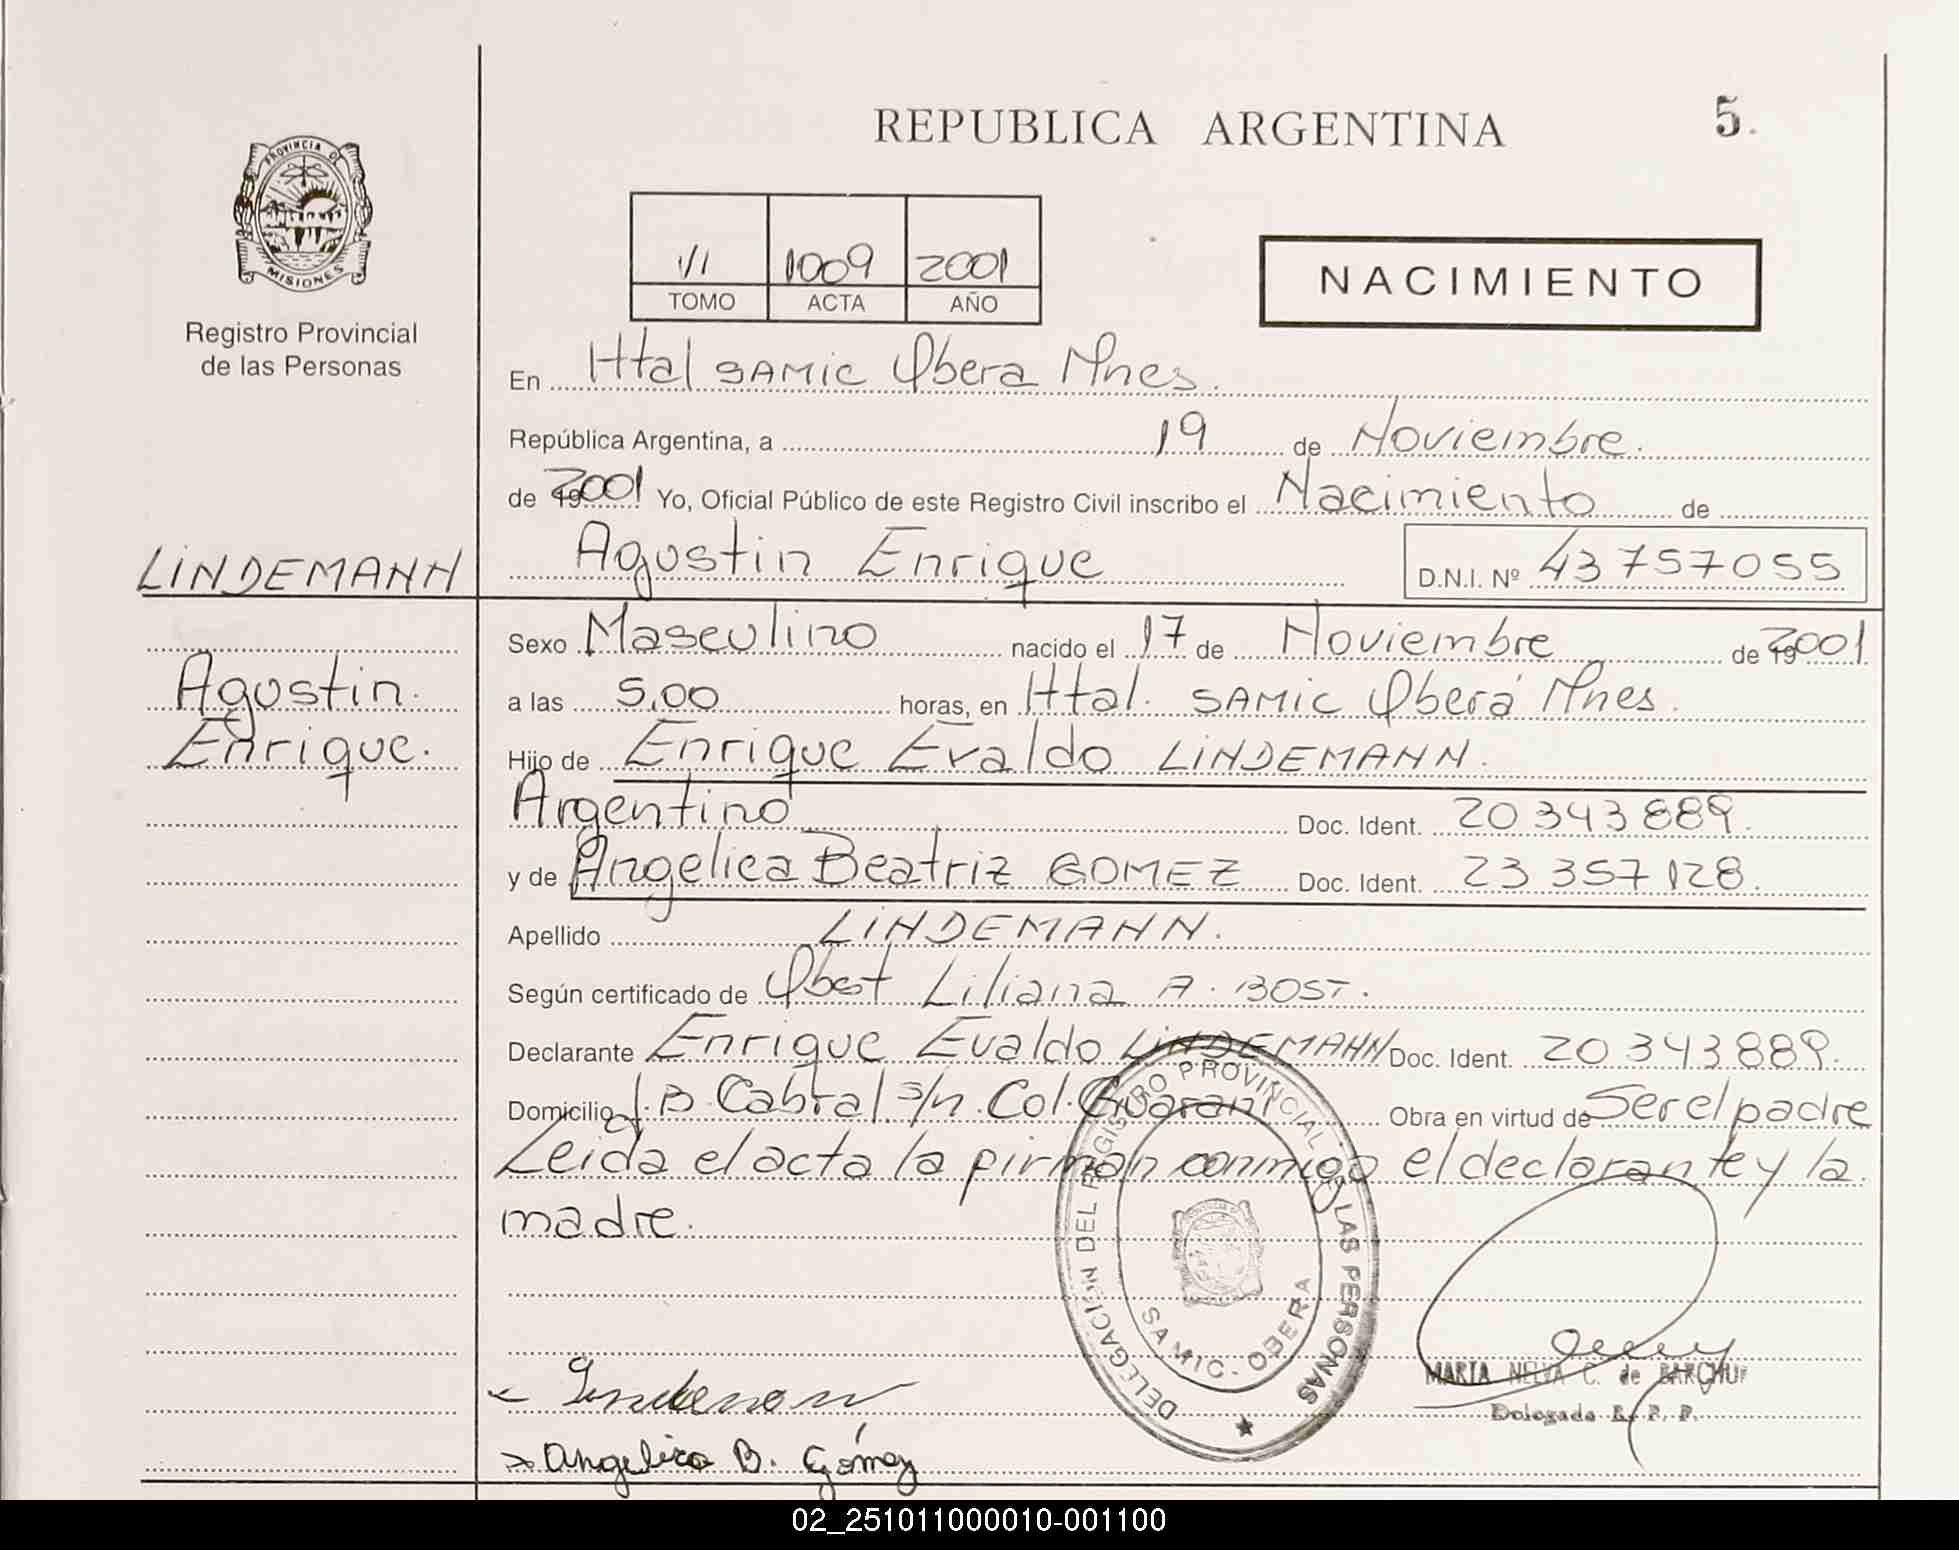 REPUBLICA ARGENTINA
5.
PROVINCIA DE
MISIONES
Registro Provincial
de las Personas
VI 1009 2001
TOMO ACTA AÑO
NACIMIENTO
En Htal SAMIC Obera Mnes.
República Argentina, a 19 de Noviembre.
de 2001 Yo, Oficial Público de este Registro Civil inscribo el Nacimiento de
LINDEMANN
Agustin Enrique D.N.I. Nº 43757055
Sexo Masculino nacido el 17 de Noviembre de 2001
Agustin.
a las 5,00 horas, en Htal. SAMIC Oberá Mnes.
Enrique.
Hijo de Enrique Evaldo LINDEMANN.
Argentino Doc. Ident. 20 343 889.
y de Angelica Beatriz GOMEZ Doc. Ident. 23 357 128.
Apellido LINDEMANN.
Según certificado de Obst Liliana A. BOST.
Declarante Enrique Evaldo LINDEMANN Doc. Ident. 20 343 889.
Domicilio J.B. Cabral s/n. Col. Guarani Obra en virtud de Ser el padre
Leida el acta la firman conmigo el declarante y la
madre.
DELEGACION DEL REGISTRO PROVINCIAL DE LAS PERSONAS
SAMIC - OBERA
MARIA NELVA C. de
Delegada R. P. P.
Angelica B. Gómez
02_251011000010-001100